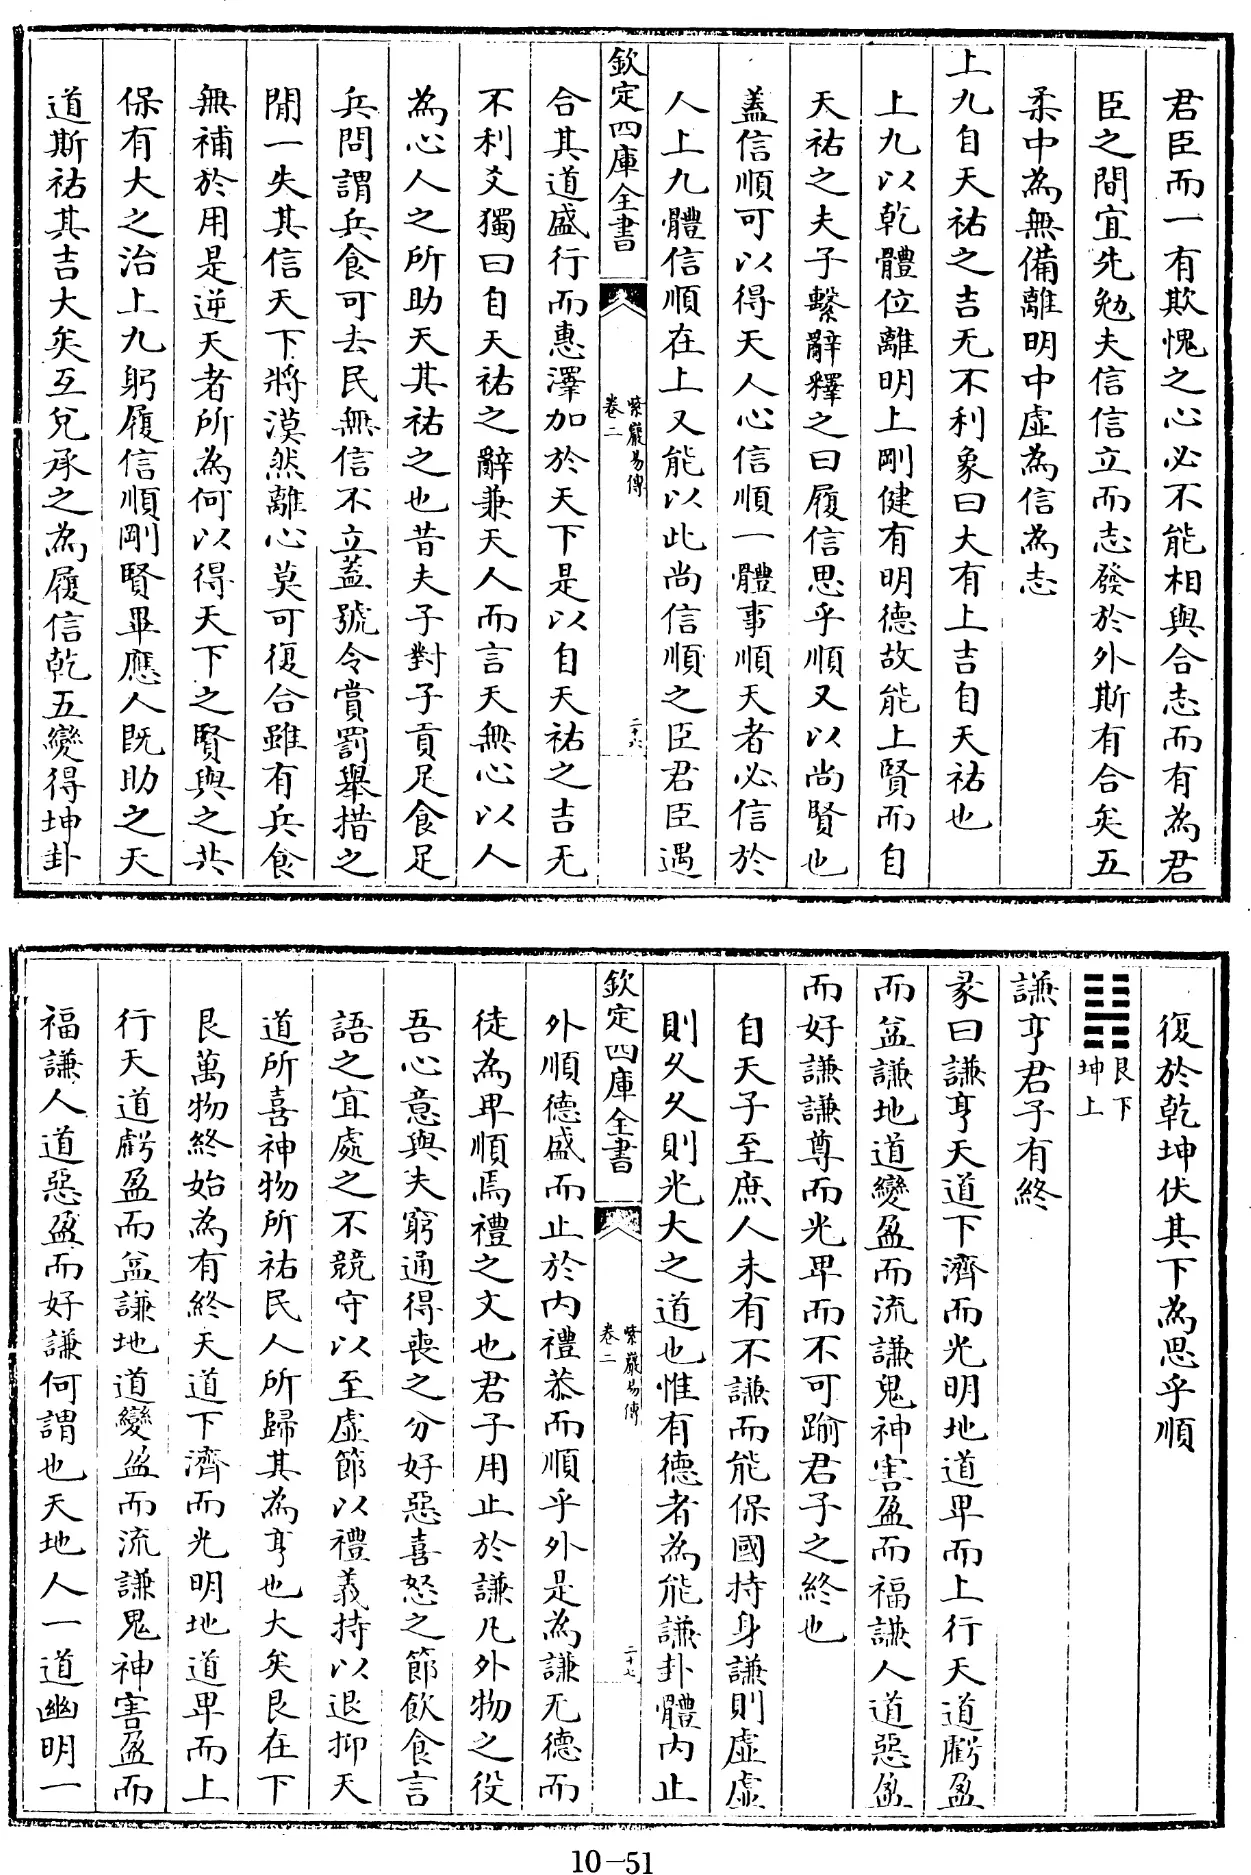 君臣而一有欺愧之心必不能相與合志而有為君
臣之間宜先勉夫信信立而志發於外斯有合矣五
柔中為無備離明中虛為信為志
上九自天祐之吉无不利象曰大有上吉自天祐也
上九以乾體位離明上剛健有明德故能上賢而自
天祐之夫子繫辭釋之曰履信思乎順又以尚賢也
蓋信順可以得天人心信順一體事順天者必信於
人上九體信順在上又能以此尚信順之臣君臣遇
欽定四庫全書
紫巖易傳
卷二
二十六
合其道盛行而惠澤加於天下是以自天祐之吉无
不利爻獨曰自天祐之辭兼天人而言天無心以人
為心人之所助天其祐之也昔夫子對子貢足食足
兵問謂兵食可去民無信不立蓋號令賞罰舉措之
間一失其信天下將漠然離心莫可復合雖有兵食
無補於用是逆天者所為何以得天下之賢與之共
保有大之治上九躬履信順剛賢畢應人既助之天
道斯祐其吉大矣互兌承之為履信乾五變得坤卦
復於乾坤伏其下為思乎順
䷎
艮下
坤上
謙亨君子有終
彖曰謙亨天道下濟而光明地道卑而上行天道虧盈
而益謙地道變盈而流謙鬼神害盈而福謙人道惡盈
而好謙謙尊而光卑而不可踰君子之終也
自天子至庶人未有不謙而能保國持身謙則虛虛
則久久則光大之道也惟有德者為能謙卦體內止
欽定四庫全書
紫巖易傳
卷二
二十七
外順德盛而止於內禮恭而順乎外是為謙无德而
徒為卑順焉禮之文也君子用止於謙凡外物之役
吾心意與夫窮通得喪之分好惡喜怒之節飲食言
語之宜處之不競守以至虛節以禮義持以退抑天
道所喜神物所祐民人所歸其為亨也大矣艮在下
艮萬物終始為有終天道下濟而光明地道卑而上
行天道虧盈而益謙地道變盈而流謙鬼神害盈而
福謙人道惡盈而好謙何謂也天地人一道幽明一
10—51